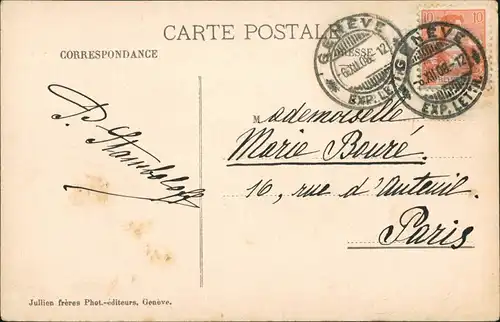 CARTE POSTALE
CORRESPONDANCE
ADRESSE
GENÈVE
6.XII.08.-12
EXP. LETTR.
GENÈVE
6.XII.08.-12
EXP. LETTR.
10 10
P. Stamboloff
Mademoiselle
Marie Bouré.
16, rue d'Auteuil.
Paris
Jullien frères Phot.-éditeurs, Genève.